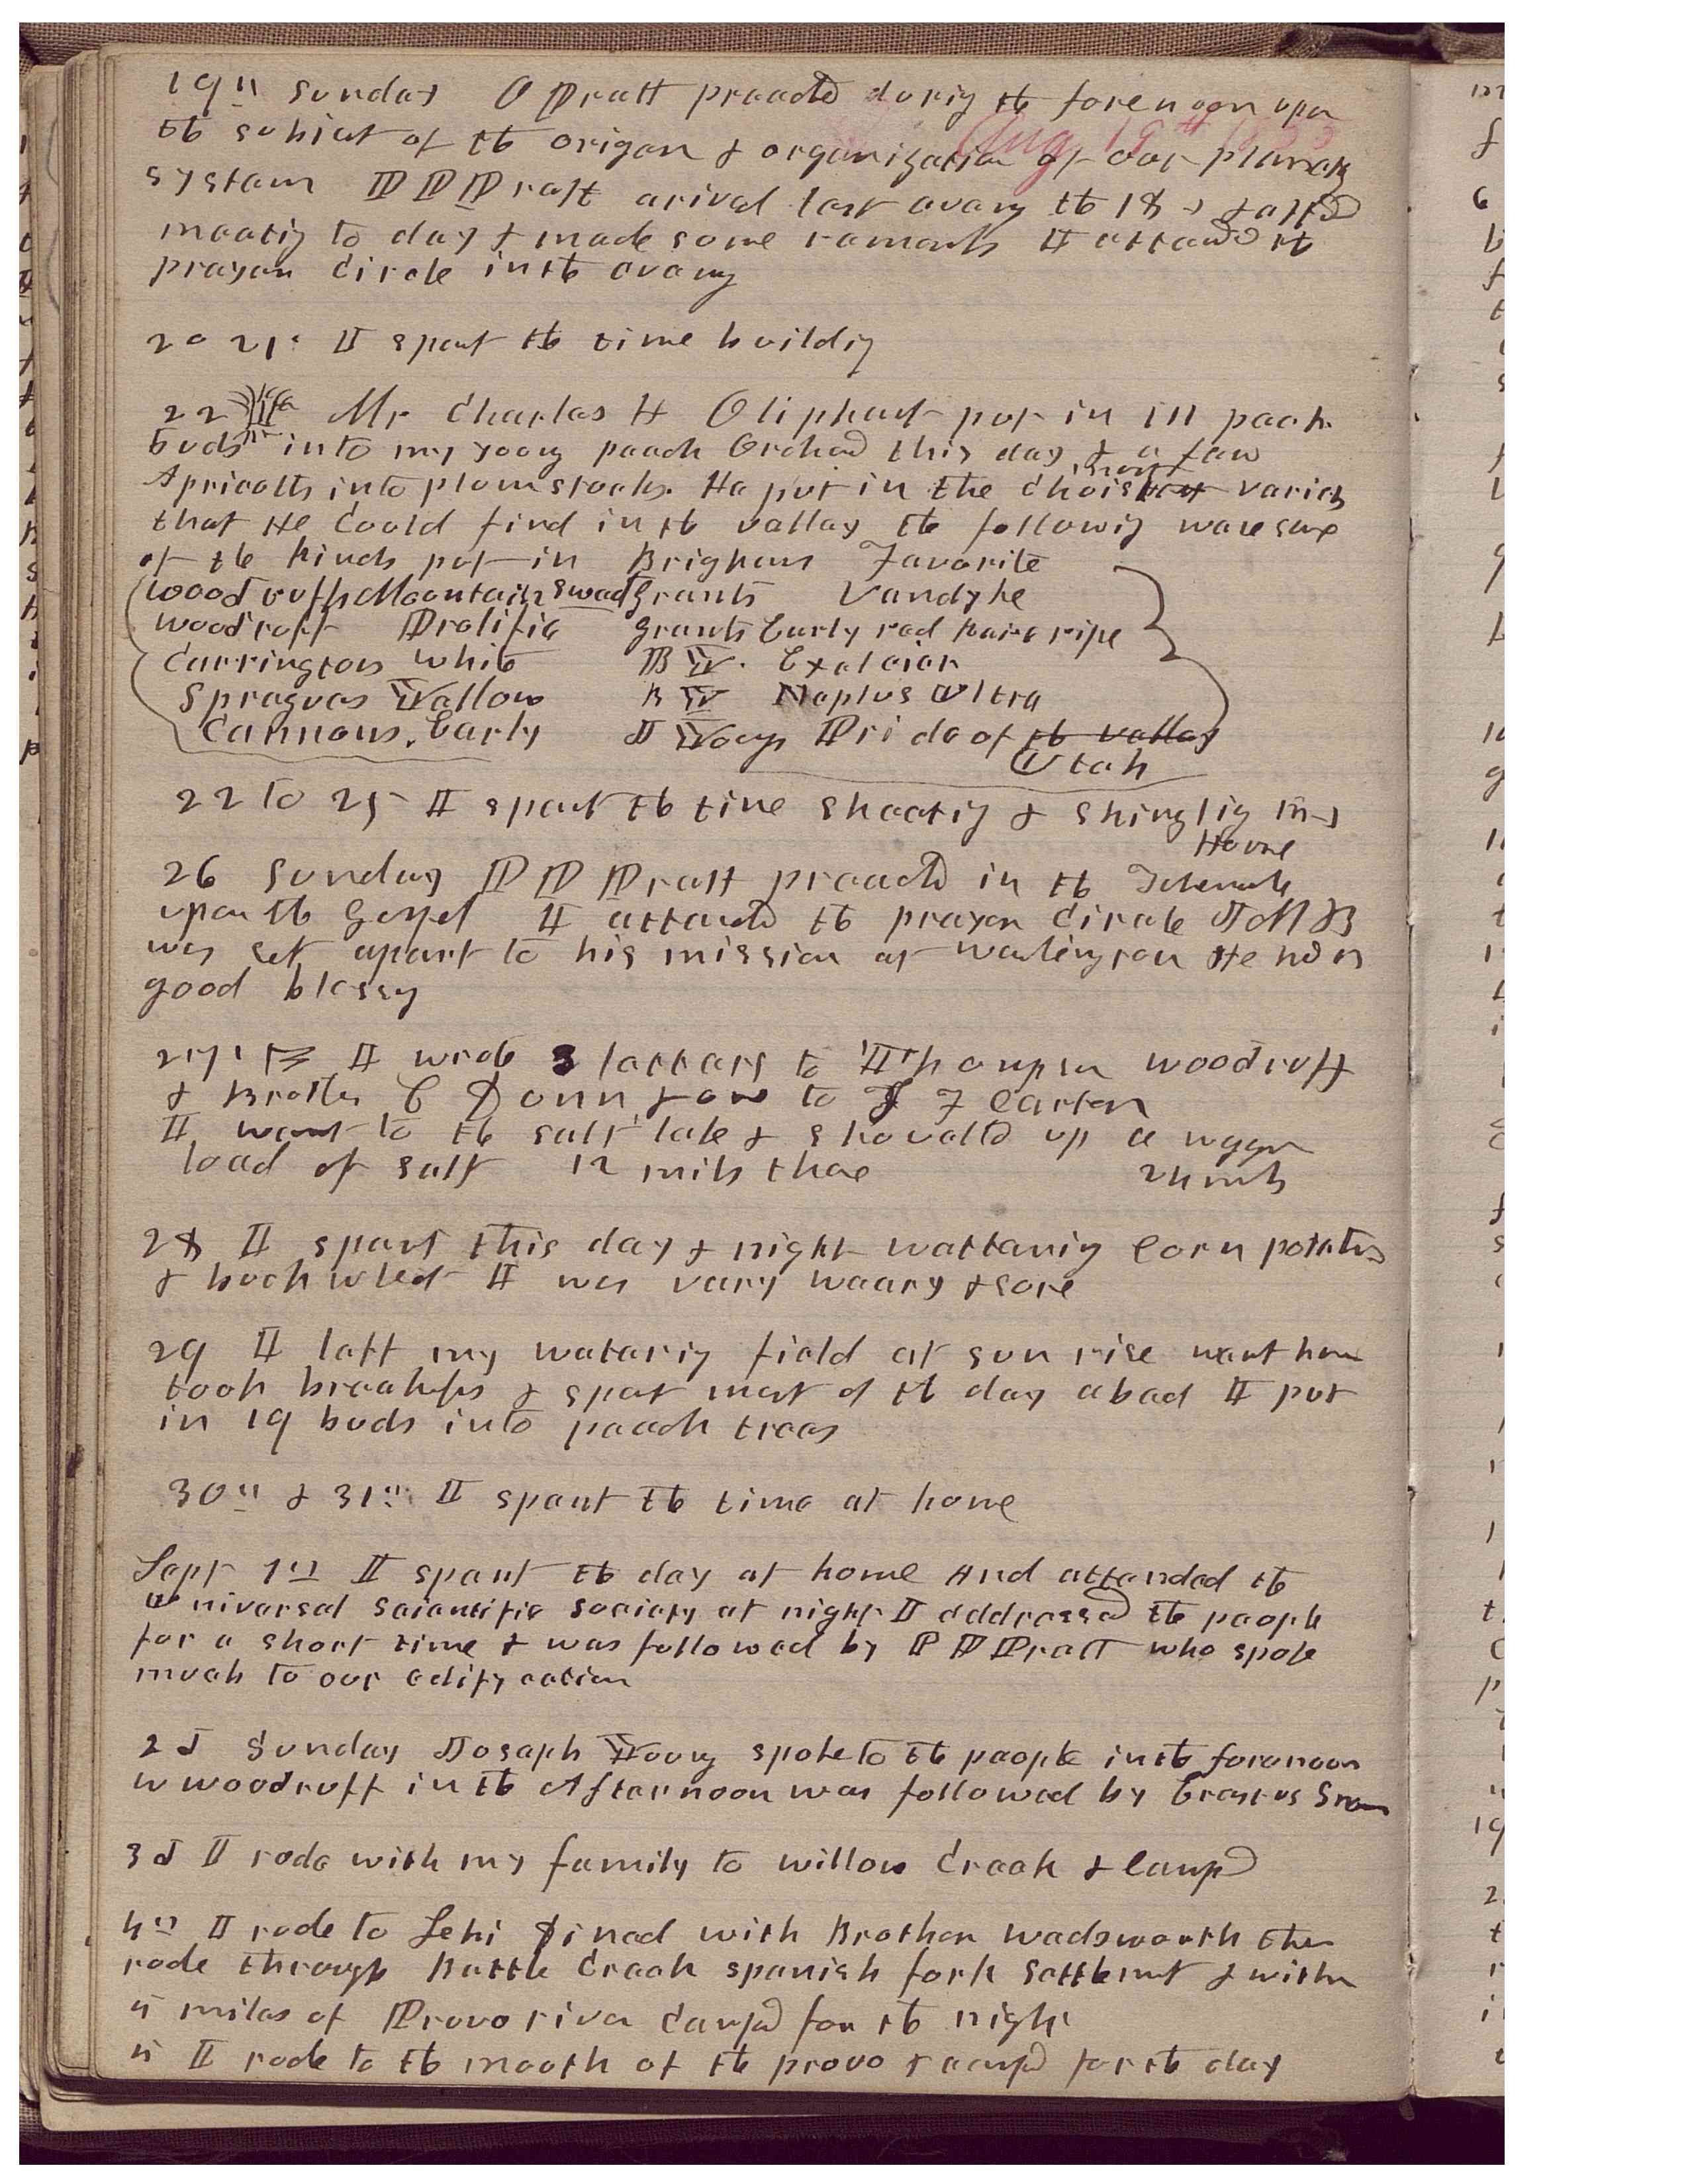 19th Sunday O Pratt preached during the forenoon upon
Aug 19th 1855
the subject of the origen & organization of our planetary
system P P Pratt arived last eveng the 18th & attd
meeting to day & made some remarks I attended the
prayer circle in the evening
20 21st I spent the time building
22nd Mr Charles H Oliphant put in 111 peach
buds into my young peach Orchard this day & a few
Apricotts into plum stocks. He put in the choisest
most
varieties
that He Could find in the valley the following were some
of the kinds put in Brighams Favorite
Woodruffs Mountain Sweet Grants Vandyke
Woodruff Prolific Grants Early red rare ripe
Carringtons White B Y. Excelcior
Spragues Yellow B Y Neplus Ultra
Cannons. Early J Youngs Pride of the valley
Utah
22 to 25 I spent the time sheeting & shingling my
House
26 Sunday P P Pratt preached in the Tabernacle
upon the Gospel I attended the prayer Circle J M B
was set apart to his mission at Washington He had a
good blessing
27th I wrote 3 letters to Thompson Woodruff
& Brother Dunn & one to F Carter
I went to the salt lake & shovelled up a wagon
load of salt 12 miles there 24 mls
28 I spent this day & night wattering Corn potatoes
& buckwheat I was very weary & sore
29 I left my watering field at sun rise went home
took breakfast & spent most of the day abed I put
in 19 buds into peach trees
30th & 31st I spent the time at home
Sept 1st I spent the day at home And attended the
Universal Scientific Society at night I adddressed the people
for a short time & was followed by P P Pratt who spoke
much to our edifycation
2d Sunday Joseph Young spoke to the people in the forenoon
W Woodruff in the Afternoon was followed by Erastus Snow
3d I rode with my family to willow Creek & Campd
4th I rode to Lehi Dined with Brother Wadsworth then
rode through Battle Creek spanish fork settlement & within
4 miles of Provo river Campd for the night
5 I rode to the mouth of the provo & campd for the day